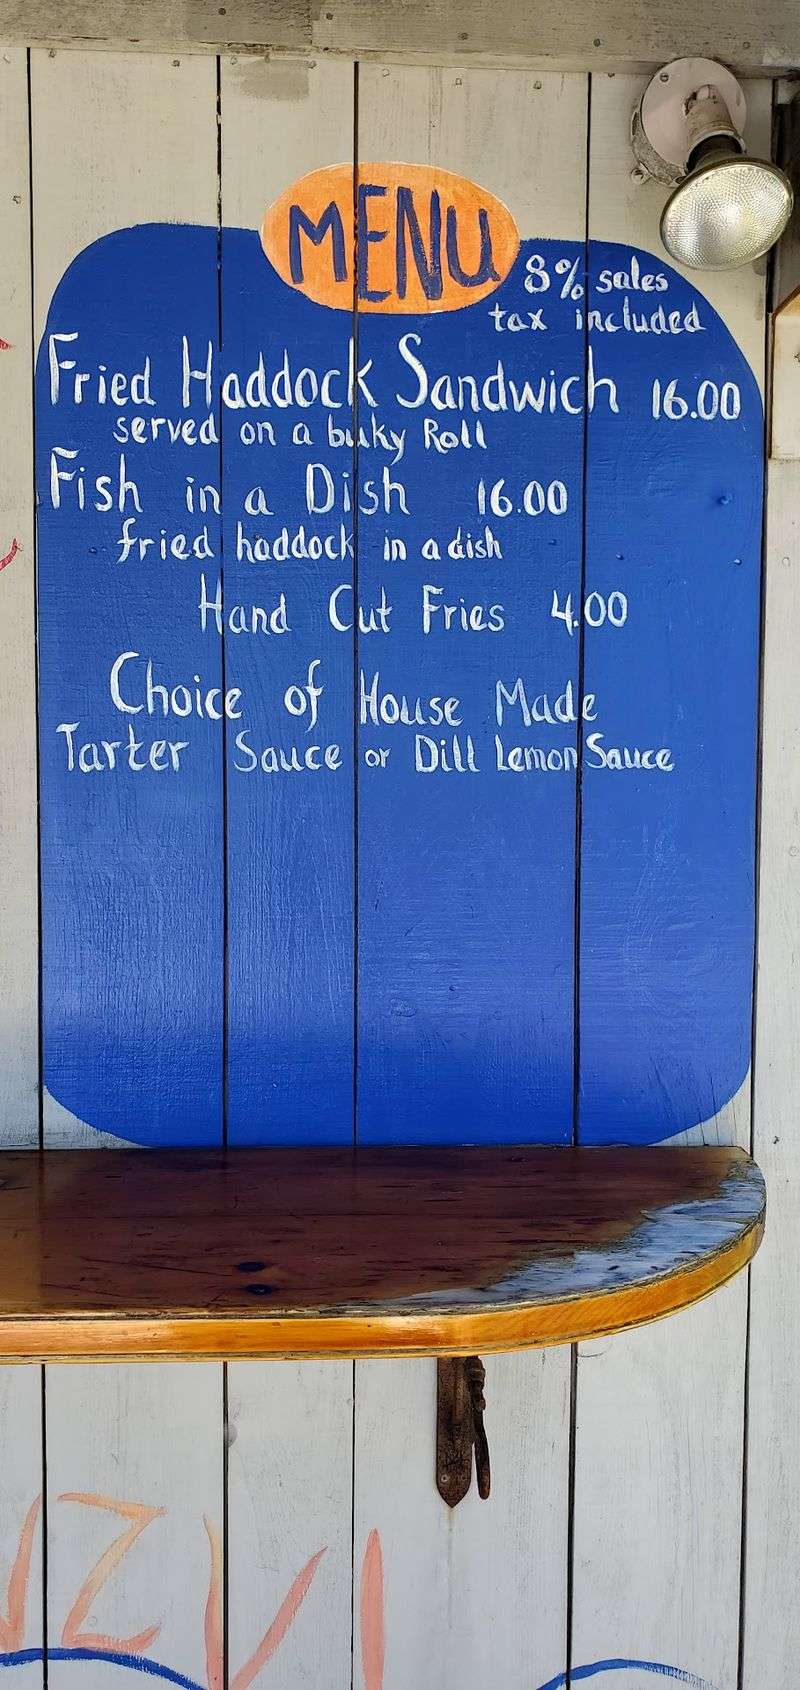 MENU
8% sales
tax included
Fried Haddock Sandwich 16.00
served on a bulky Roll
Fish in a Dish 16.00
fried haddock in a dish
Hand Cut Fries 4.00
Choice of House Made
Tarter Sauce or Dill Lemon Sauce